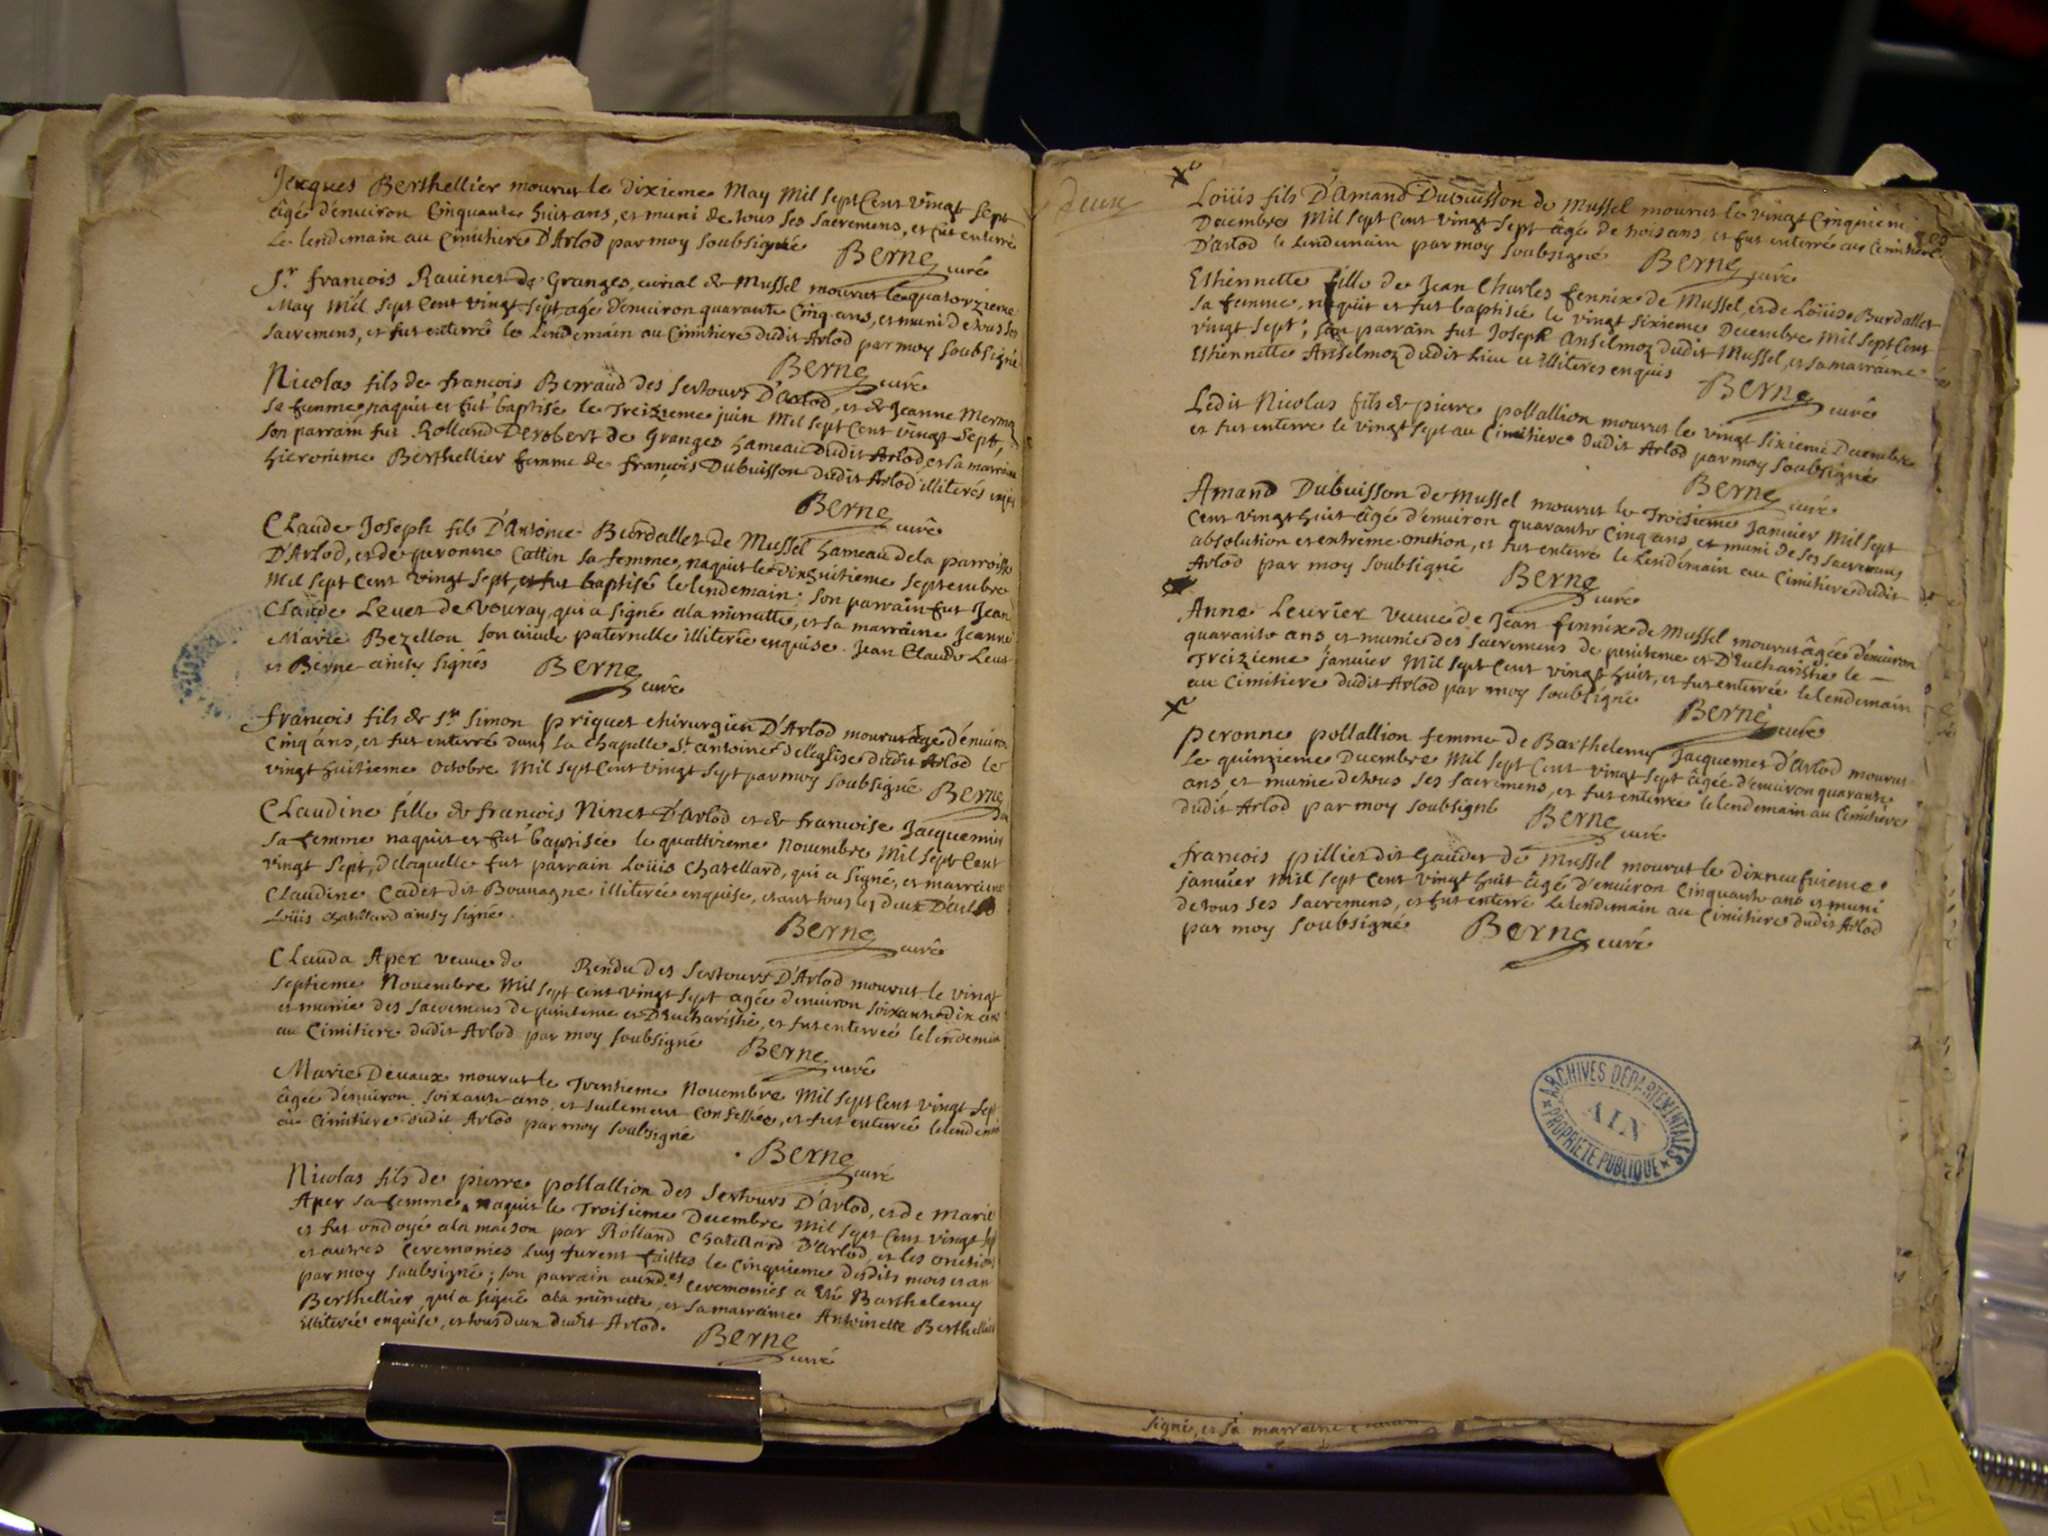 Jacques Berthellier mourut le dixieme May Mil sept Cent vingt sept
âgé d'enuiron Cinquante huit ans, et muni de tous ses sacremens, et fut enterré
le lendemain au Cimitiere D'Arlod par moy soubsigné Berne curé
Sr. françois Rauinet de Granges, curial de Mussel mourut le quatorzieme
May Mil sept Cent vingt sept agé d'enuiron quarante Cinq ans, et muni de tous ses
sacremens, et fut enterré le Lendemain au Cimitiere dudit Arlod par moy soubsigné
Berne curé
Nicolas fils de françois Berraud des sertours D'arlod, et de Jeanne Mermo
sa femme, naquit et fut baptisé le Treizieme juin Mil sept Cent vingt sept,
son parrain fut Rolland Derobert de Granges hameau dudit Arlod, et sa marraine
hieronime Berthellier femme de françois Dubuisson dudit Arlod illiterés
Berne curé
Claude Joseph fils D'Antoine Burdallet de Mussel hameau dela parroisse
D'Arlod, et de peronne Cattin sa femme, naquit le dixhuitieme septembre
Mil sept Cent vingt sept, et fut baptisé le lendemain; son parrain fut Jean
Claude Leuet de vouray, qui a signé ala minutte, et sa marraine Jeanne
Marie Bezellon son paternelle illiterée enquise. Jean Claude Leuet
et Berne ainsy signés Berne curé
françois fils de Sr. Simon priquet chirurgien D'Arlod mourut âgé d'enuiron
Cinq ans, et fut enterré dans la chapelle St. antoine de l'eglise dudit Arlod le
vingt huitieme octobre Mil sept Cent vingt sept par moy soubsigné Berne
Claudine fille de françois Ninet D'Arlod et de francoise Jacquemin
sa femme naquit et fut baptisée le quattrieme Nouembre Mil sept Cent
vingt sept, delaquelle fut parrain Loüis Chatellard, qui a signé, et marraine
Claudine Cadet dit Bouuagne illiterée enquise, etant tous les deux D'arlod
Loüis chatellard ainsy signé.
Berne curé
Clauda Aper veuue de Rendu des Sertours D'Arlod mourut le vingt
septieme Nouembre Mil sept cent vingt sept agée d'enuiron soixante dix ans
et munie des sacremens de penitence et D'Eucharistie, et fut enterrée le lendemain
au Cimitiere dudit Arlod par moy soubsigné Berne curé
Marie Deuaux mourut le Trentieme Nouembre Mil sept Cent vingt sept
âgée d'enuiron soixante ans, et seulement Confessée, et fut enterrée le lendemain
au Cimitiere dudit Arlod par moy soubsigné
Berne curé
Nicolas fils de pierre pollallion des Sertours D'Arlod, et de Marie
Aper sa femme, naquit le Troisieme Decembre Mil sept Cent vingt sept
et fut ondoyé ala maison par Rolland Chatellard D'Arlod, et les onctions
et autres Ceremonies luy furent faittes le Cinquieme desdits mois et an
par moy soubsigné; son parrain auxd.es Ceremonies a Eté Barthelemy
Berthellier, qui a signé ala minutte, et sa marraine Antoinette Berthellier
illiterée enquise, et tous deux dudit Arlod.
Berne curé
deux
Loüis fils D'Amand Dubuisson de Mussel mourut le vingt Cinquieme
Decembre Mil sept Cent vingt sept âgé de trois ans, et fut enterré au Cimitiere
D'arlod le lendemain par moy soubsigné Berne curé
Esthiennette fille de Jean Charles fennix de Mussel, et de Loüise Burdallet
sa femme, naquit et fut baptisée le vingt sixieme Decembre Mil sept Cent
vingt sept; son parrain fut Joseph Anselmoz dudit Mussel, et sa marraine
Esthiennette Anselmoz dudit lieu et illiteres enquis
Berne curé
Ledit Nicolas fils de pierre pollallion mourut le vingt sixieme Decembre
et fut enterré le vingt sept au Cimitiere dudit Arlod par moy soubsigné
Berne curé
Amand Dubuisson de Mussel mourut le Troisieme Januier Mil sept
Cent vingt huit âgé d'enuiron quarante Cinq ans et muni de ses sacremens
absolution et extrême onction, et fut enterré le Lendemain au Cimitiere dudit
Arlod par moy soubsigné Berne curé
Anne Leurier veuue de Jean fennix de Mussel mourut âgée d'enuiron
quarante ans et munie des sacremens de penitence et D'Eucharistie le
Treizieme januier Mil sept Cent vingt huit, et fut enterrée le lendemain
au Cimitiere dudit Arlod par moy soubsigné
Berne curé
Peronne pollallion femme de Barthelemy Jacquemet d'Arlod mourut
Le quinzieme Decembre Mil sept Cent vingt sept âgée d'enuiron quarante
ans et munie de tous ses sacremens, et fut enterrée le lendemain au Cimitiere
dudit Arlod par moy soubsigné Berne curé
françois pilliet dit Gaudet de Mussel mourut le dixneufuieme
januier Mil sept Cent vingt huit âgé d'enuiron Cinquante ans et muni
de tous ses sacremens, et fut enterré le lendemain au Cimitiere dudit Arlod
par moy soubsigné Berne curé
ARCHIVES DÉPARTEMENTALES
AIN
PROPRIÉTÉ PUBLIQUE
signé, et sa marraine